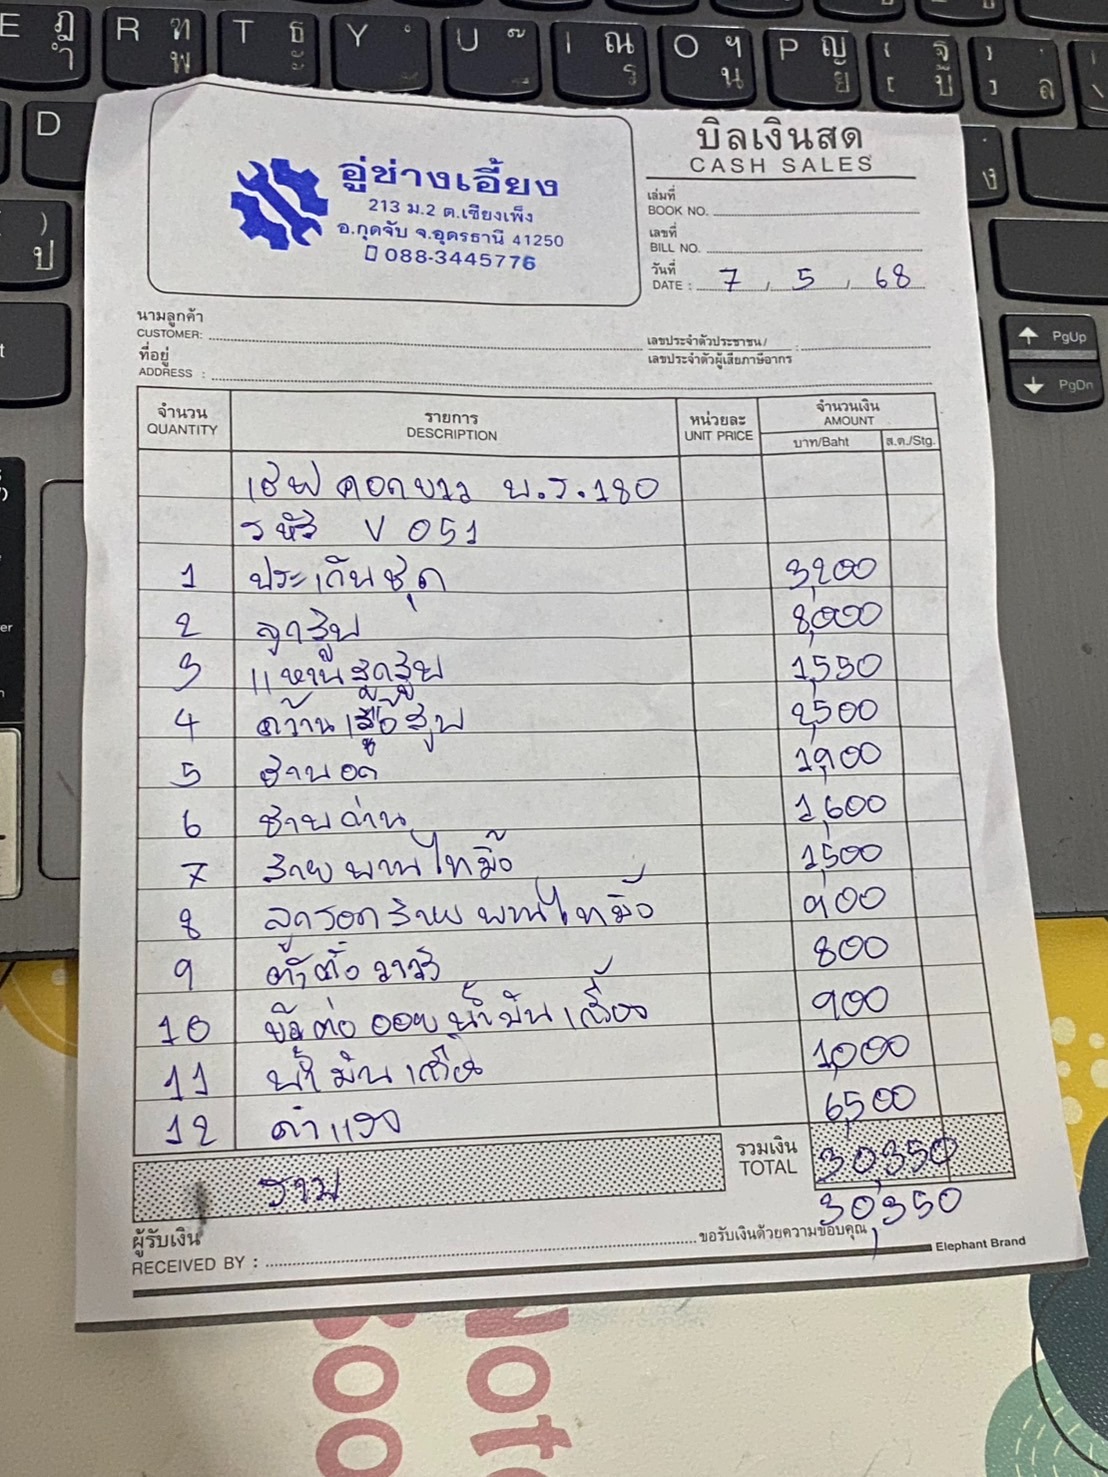 บิลเงินสด
CASH SALES
อู่ช่างเอี้ยง
213 ม.2 ต.เชียงเพ็ง
อ.กุดจับ จ.อุดรธานี 41250
088-3445776
เล่มที่
BOOK NO.
เลขที่
BILL NO.
วันที่
DATE : 7 , 5 , 68
นามลูกค้า
CUSTOMER:
เลขประจำตัวประชาชน/ :
เลขประจำตัวผู้เสียภาษีอากร
ที่อยู่
ADDRESS :
จำนวน รายการ หน่วยละ จำนวนเงิน
QUANTITY DESCRIPTION UNIT PRICE AMOUNT
บาท/Baht ส.ต./Stg.
เชฟ คอกขาว 180
รหัส V 051
1 ประเก็นชุด 3,200
2 ลูกสูบ 8,000
3 แหวนลูกสูบ 1,550
4 คว้านเสื้อสูบ 2,500
5 ชาพอก 1,900
6 ชาพก้าน 1,600
7 สายพานไทมิ้ง 1,500
8 ลูกรอกสายพานไทมิ้ง 900
9 ค่าตั้งวาวล์ 800
10 ข้อต่อออยน้ำมันเครื่อง 900
11 น้ำมันเครื่อง 1,000
12 ค่าแรง 6,500
รวม
รวมเงิน
TOTAL 30,350
30,350
ผู้รับเงิน
RECEIVED BY :
ขอรับเงินด้วยความขอบคุณ
Elephant Brand
E ฎ ำ
R ฑ พ
T ธ ะ
Y
U
I ณ ร
O ฯ น
P ญ ย
D
ป
PgUp
PgDn